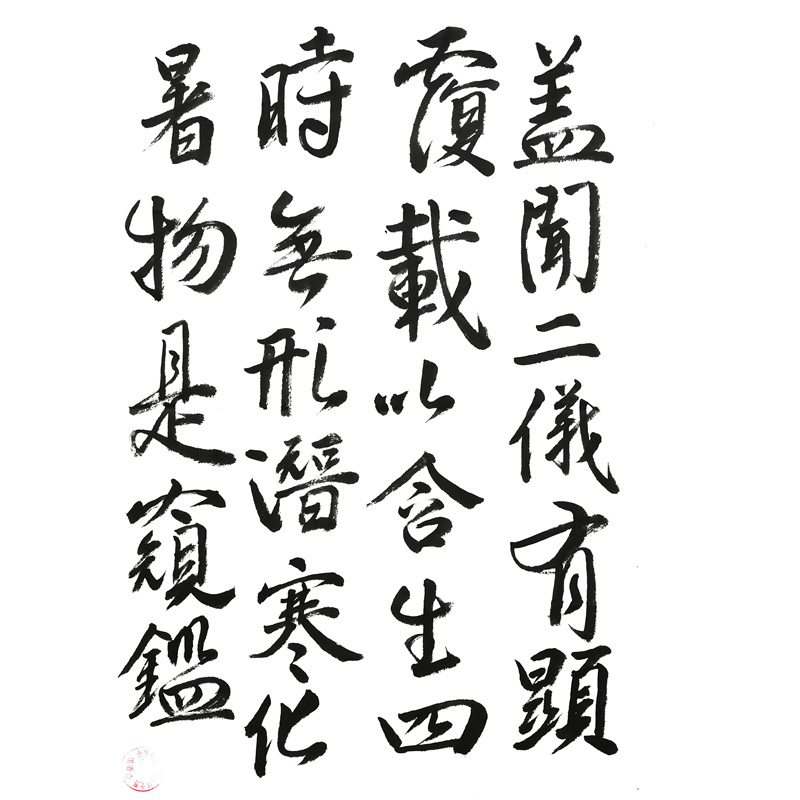 盖聞二儀有顕
覆載以含生四
時無形潛寒化
暑物是窺鑑